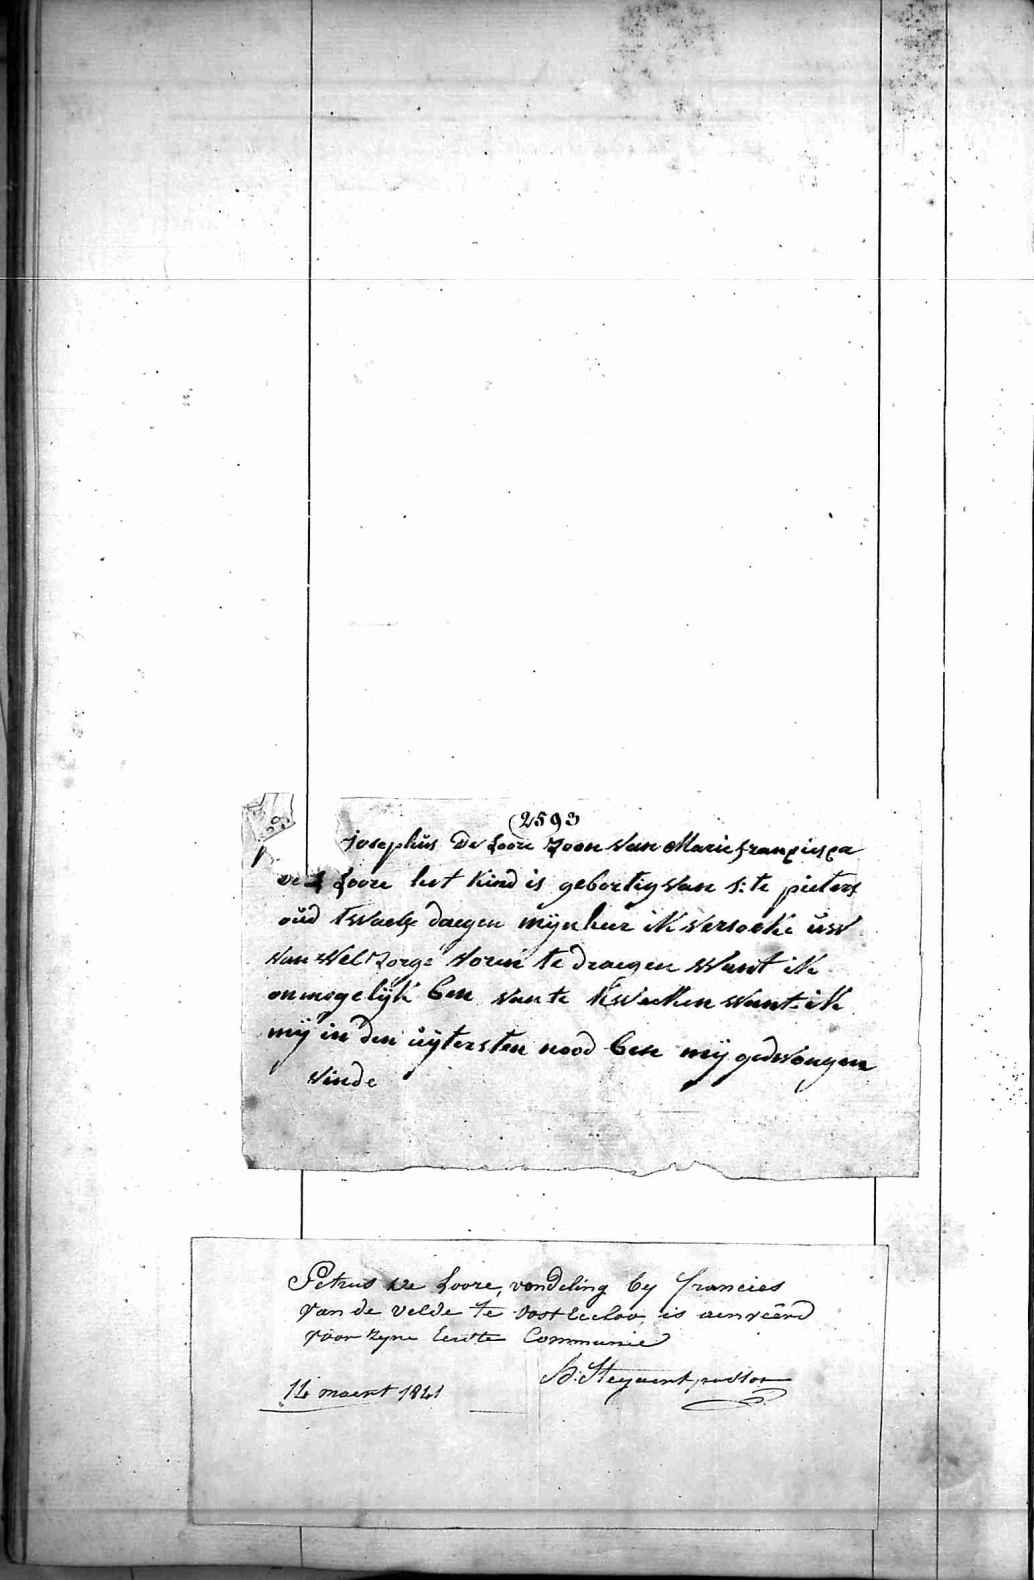 (2593
josephüs De Loore Zoon van Marie franciesca
De Loore het kind is gebortig van s:te pieters
oüd twaelf daegen mÿnheer ik versoeke üw
van wel zorge voren te draegen want ik
onmogelÿk ben van te kweeken want ik
mÿ in den üÿtersten nood ben mÿ gedwongen
vinde
Petrus De Loore, vondeling by francies
van de velde te oost Eecloo, is aenveêrd
voor zyne Eerste Communie
B. Steyaert, pastor
14 maert 1841